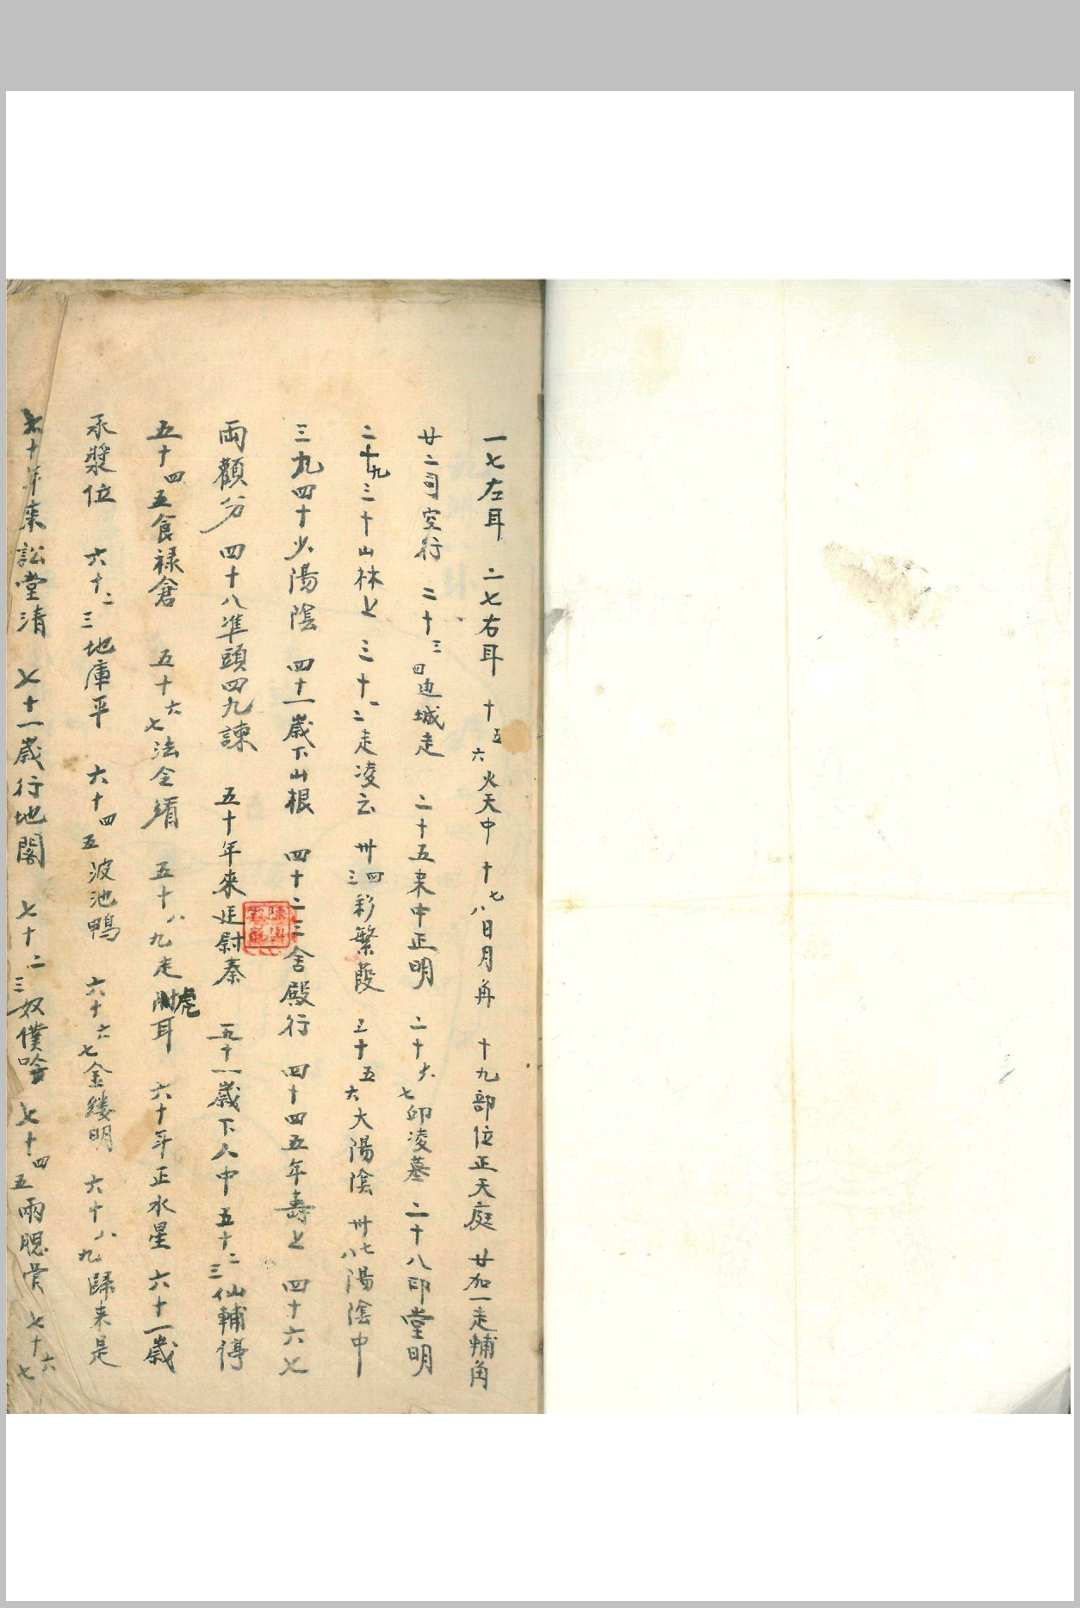 一七左耳 二七右耳 十五六火天中 十七八日月角 十九部位正天庭 廿加一走輔角
廿二司空行 二十三四边城走 二十五来中正明 二十六七邱凌墓 二十八印堂明
二十九三十山林上 三十一二走凌云 卅三四彩繁霞 三十五六大陽陰 卅七八陽陰中
三九四十少陽陰 四十一歲下山根 四十二三舍殿行 四十四五年壽上 四十六七
両顴分 四十八準頭四九諫 五十年來廷尉秦 五十一歲下人中 五十二三仙輔停
五十四五食禄倉 五十六七法令 五十八九走虎耳 六十年正水星 六十一歲
承漿位 六十二三地庫平 六十四五波池鴨 六十六七金缕明 六十八九歸来是
七十年来訟堂清 七十一歲行地閣 七十二三奴僕 七十四五兩腮骨 七十六七